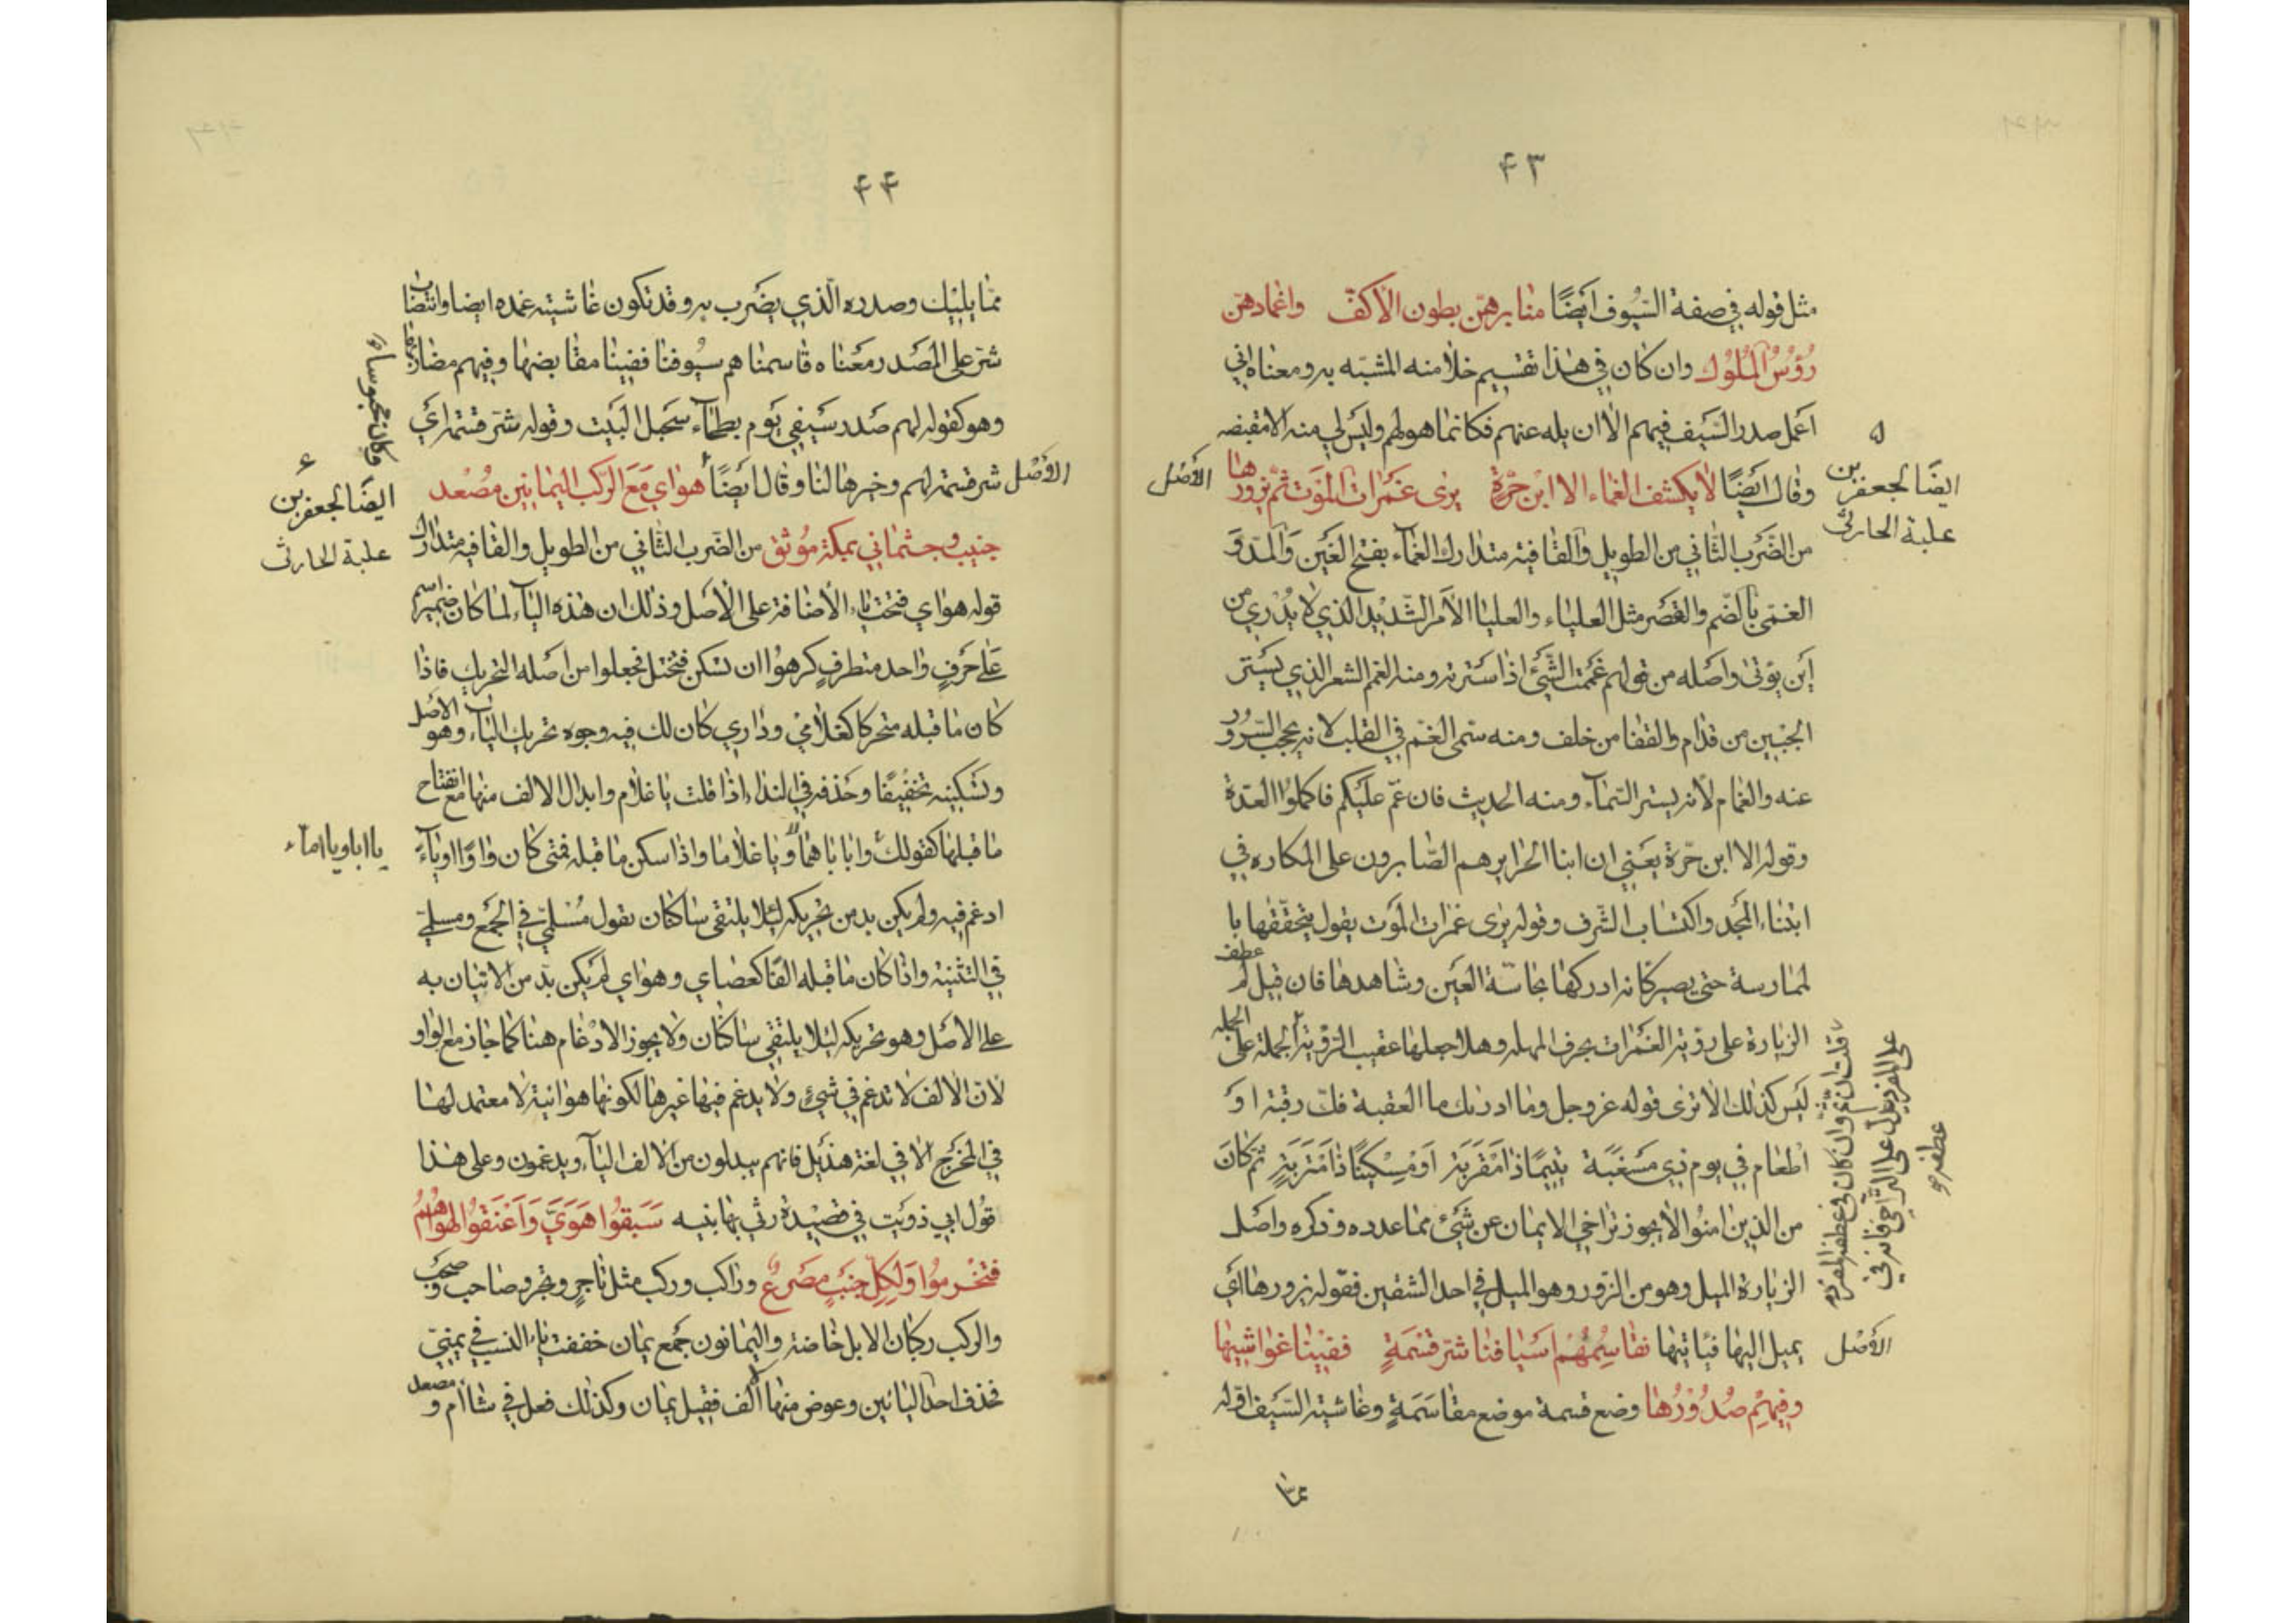 ۴۳
مثل قوله في صفة السيوف ايضًا منابرهن بطون الأكف واغمادهن
رؤس الملوك وان كان في هذا تقسيم خلا منه المشبه به ومعناه اني
اعمل صدر السيف فيهم الا ان يله عنهم فكانما هو لهم وليس لي منه الا مقبضه
۵
ايضا لجعفر بن
علبة الحارثى
الأصل
وقال ايضًا لا يكشف الغماء الا ابن حرّة يرى غمرات الموت ثم يزورها
من الضرب الثاني من الطويل والقافية متدارك الغمآء بفتح الغين والمدّ و
الغمّى بالضم والقصر مثل العلياء والعليا الأمر الشديد الذي لا يدرى من
أين يؤتى واصله من قولهم غممت الشئ اذا سترته ومنه الغمم الشعر الذي يستر
الجبين من قدام والقفا من خلف ومنه سمى الغم في القلب لانه يحجب السرور
عنه والغمام لأنه يستر السمآء ومنه الحديث فان غمّ عليكم فاكملوا العدة
وقوله الا ابن حرّة يعني ان ابنا الحراير هم الصابرون على المكاره في
ابتناء المجد واكتساب الشرف وقوله يرى غمرات الموت يقول يتحققها با
لممارسة حتى يصير كانه ادركها بحاسّة العين وشاهدها فان قيل لم عطف
الزيارة على رؤية الغمرات بحرف المهله وهلا جعلها عقيب الرؤية الجملة على الجمله
ليس كذلك الا ترى قوله عز وجل وما ادريك ما العقبة فك رقبة او
اطعام في يوم ذي مسغبة يتيمًا ذا مقربة او مسكينًا ذا متربة ثم كان
من الذين امنوا لأ يجوز تراخي الايمان عن شئ مما عدده وذكره واصل
الزيارة الميل وهو من الزور وهو الميل في احد الشقين فقوله يزورها اى
الأصل
يميل اليها فيأتيها نقاسمهم اسيافنا شر قسمةٍ ففينا غواشيها
وفيهم صدورها وضع قسمة موضع مقاسمةٍ وغاشية السيف قوله
قلت ان ثم وان كان في عطف المفرد
على المفرد يدل على التراخى فانه في
عطف
ممّا
۴۴
ممّا يليك وصدره الّذي يضرب به وقد تكون غاشيته غمده ايضا وانتصاب
شر على المصدر معناه قاسمناهم سيوفنا ففينا مقابضها وفيهم مضاربها
وهو كقوله لهم صدر سيفي يوم بطحآء سحبل البيت وقوله شر قسمة اي
الأصل
شر قسمة لهم وخيرها لنا وقال ايضًا هواي مع الركب اليمانين مصعد
۶
ايضًا لجعفر بن
علبة الحارثى
جنيب وجثماني بمكة موثق من الضرب الثاني من الطويل والقافية متدارك
قوله هواي فتحت ياء الأضافة على الأصل وذلك ان هذه اليآء لما كان ضمير اسم
على حرف واحد متطرفٍ كرهوا ان تسكن فتختل فجعلوا من اصله التحريك فاذا
كان ما قبله متحركا كغلامي وداري كان لك فيه وجوه تحريك اليآء وهو الأصل
وتسكينه تخفيفًا وحذفه في النداء اذا قلت يا غلام وابدال الالف منها مع انفتاح
ما قبلها كقولك وابابا هما ويا غلاما واذا سكن ما قبله فمتى كان واوًا او يآء
يا ابا ويا اماء
ادغم فيه ولم يكن بد من تحريكه لئلا يلتقى ساكنان تقول مسلمي في الجمع ومسلمي
في التثنية واذا كان ما قبله الفًا كعصاي وهواي لم يكن بد من الاتيان به
على الأصل وهو تحريكه لئلا يلتقي ساكنان ولا يجوز الادغام هنا كما جاز مع الواو
لأن الالف لا تدغم في شئ ولا يدغم فيها غيرها لكونها هوائية لا معتمد لها
في المخرج الا في لغة هذيل فانهم يبدلون من الالف اليآء ويدغمون وعلى هذا
قول ابي ذويب في قصيدة رثى بها بنيه سبقوا هويّ واعنقوا لهواهم
فتخرموا ولكل جنب مصرع وراكب وركب مثل تاجر وتجر وصاحب وصحب
والركب ركبان الابل خاصة واليمانون جمع يمان خففت ياء النسب في يمني
فحذف احد اليائين وعوض منها الف فقيل يمان وكذلك فعل في شاأم ومصعد